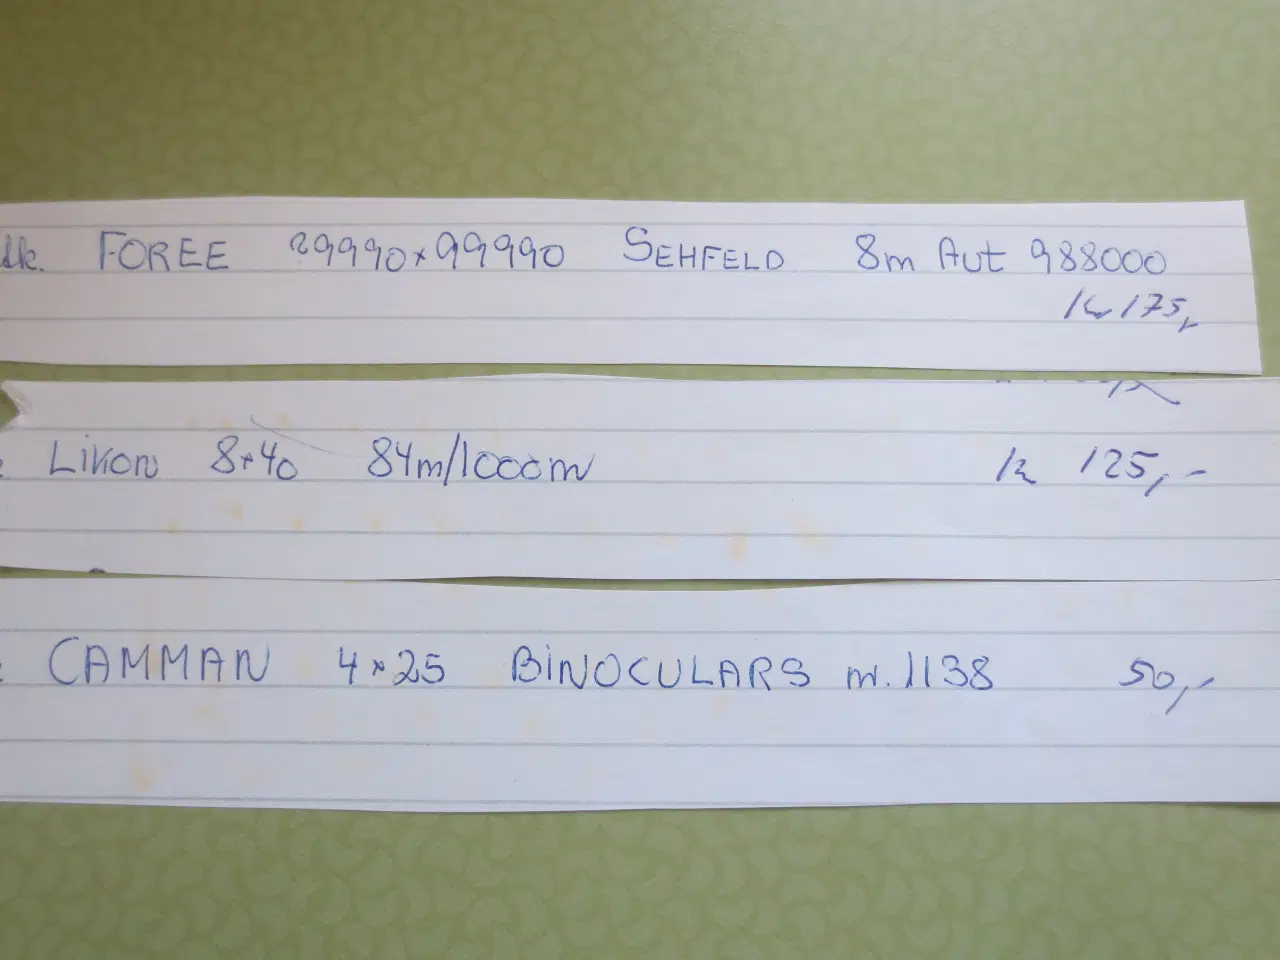 dk. FOREE 29990x99990 SEHFELD 8m Aut 988000
Kr 175,-
Likon 8x40 84m/1000m Kr 125,-
CAMMAN 4x25 BINOCULARS nr. 1138 50,-